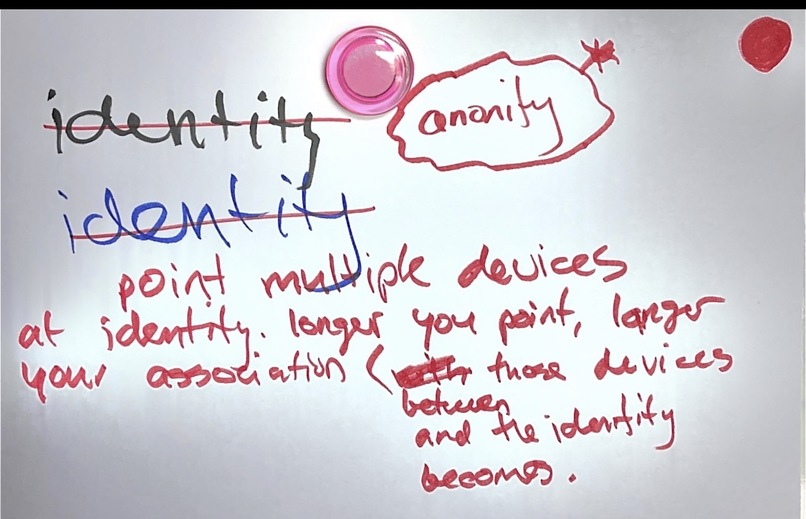 identity
anonity
identity
point multiple devices
at identity. longer you point, longer
your association ( with those devices
between
and the identity
becomes.